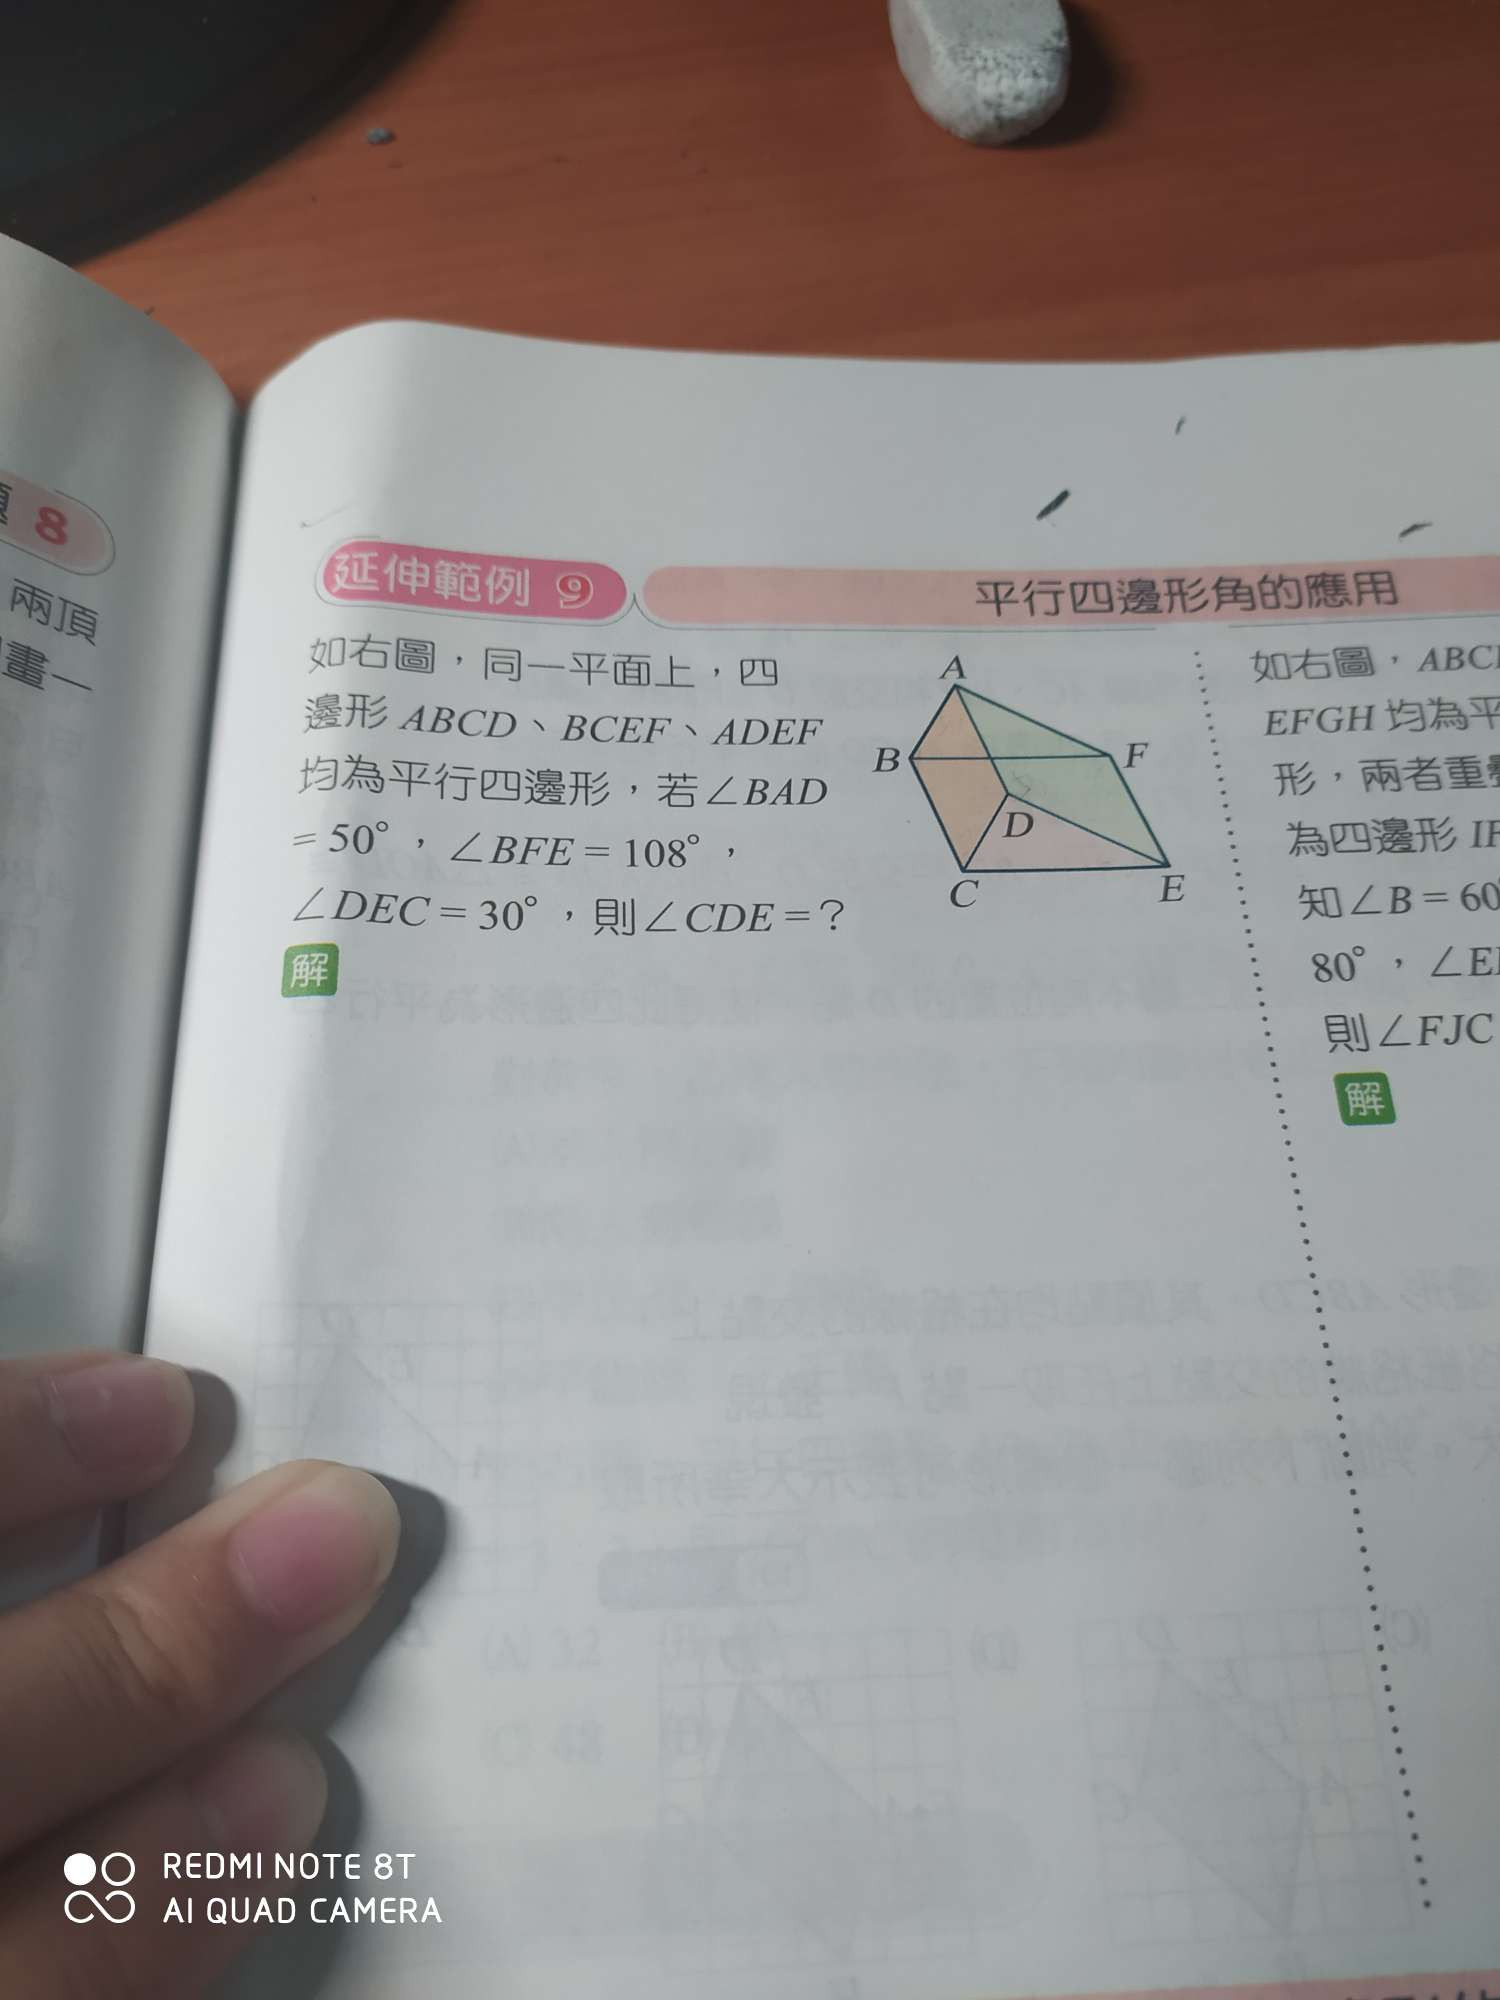 8
兩頂
畫一
延伸範例 9
平行四邊形角的應用
如右圖，同一平面上，四
邊形 ABCD、BCEF、ADEF
均為平行四邊形，若∠BAD
= 50°，∠BFE = 108°，
∠DEC = 30°，則∠CDE = ?
解
A
B
F
D
C
E
如右圖，ABC
EFGH 均為平
形，兩者重疊
為四邊形 IF
知∠B = 60°
80°，∠E
則∠FJC
解
REDMI NOTE 8T
AI QUAD CAMERA